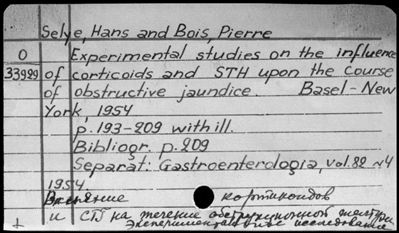 Selye, Hans and Bois, Pierre
0 Experimental studies on the influence
33999 of corticoids and STH upon the course
of obstructive jaundice. Basel-New
York, 1954
p. 193-209 with ill.
Bibliogr. p. 209
Separat: Gastroenterologia, vol. 82 №4
1954.
Влияние кортикоидов
и СТГ на течение обструкционной желтухи
Экспериментальное исследование